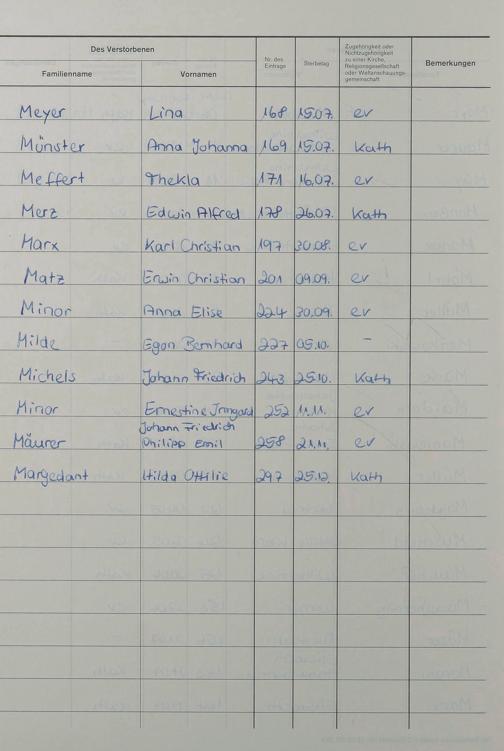 Des Verstorbenen
Familienname Vornamen
Nr. des Eintrags
Sterbetag
Zugehörigkeit oder Nichtzugehörigkeit zu einer Kirche, Religionsgesellschaft oder Weltanschauungsgemeinschaft
Bemerkungen
Meyer Lina 168 15.07. ev
Münster Anna Johanna 169 15.07. Kath
Meffert Thekla 171 16.07. ev
Merz Edwin Alfred 178 26.07. Kath
Marx Karl Christian 197 30.08. ev
Matz Erwin Christian 201 09.09. ev
Minor Anna Elise 224 30.09. ev
Milde Egon Bernhard 227 05.10. –
Michels Johann Friedrich 243 25.10. Kath
Minor Ernestine Irmgard 252 11.11. ev
Johann Friedrich
Mäurer Philipp Emil 258 21.11. ev
Margedant Hilda Ottilie 297 25.12. Kath